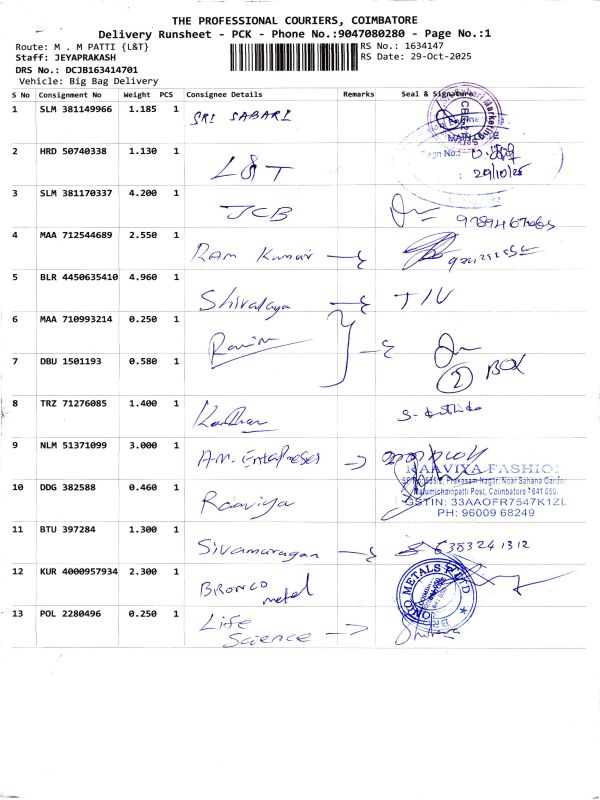 THE PROFESSIONAL COURIERS, COIMBATORE
Delivery Runsheet - PCK - Phone No.:9047080280 - Page No.:1
Route: M . M PATTI {L&T}
RS No.: 1634147
Staff: JEYAPRAKASH
RS Date: 29-Oct-2025
DRS No.: DCJB163414701
Vehicle: Big Bag Delivery
S No Consignment No Weight PCS Consignee Details Remarks Seal & Signature
1 SLM 381149966 1.185 1 SRI SABARI
2 HRD 50740338 1.130 1 L&T
29/10/25
3 SLM 381170337 4.200 1 JCB
4 MAA 712544689 2.550 1 RAM Kumar
5 BLR 4450635410 4.960 1 Shivalaya T/V
6 MAA 710993214 0.250 1
7 DBU 1501193 0.580 1 2 BOX
8 TRZ 71276085 1.400 1
9 NLM 51371099 3.000 1 A.M. Enterprises
RAAVIYA FASHIO
Prakasam Nagar, Near Sahana Garde
Malumichampatti Post, Coimbatore - 641 050.
GSTIN: 33AAOFR7547K1ZL
PH: 96009 68249
10 DDG 382588 0.460 1 Raaviya
11 BTU 397284 1.300 1 Sivamurugan 6383241312
12 KUR 4000957934 2.300 1 BRONCO metal
13 POL 2280496 0.250 1 Life Science